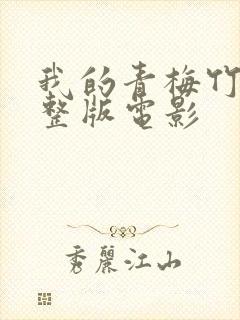 我的青梅竹
整版電影
秀麗江山